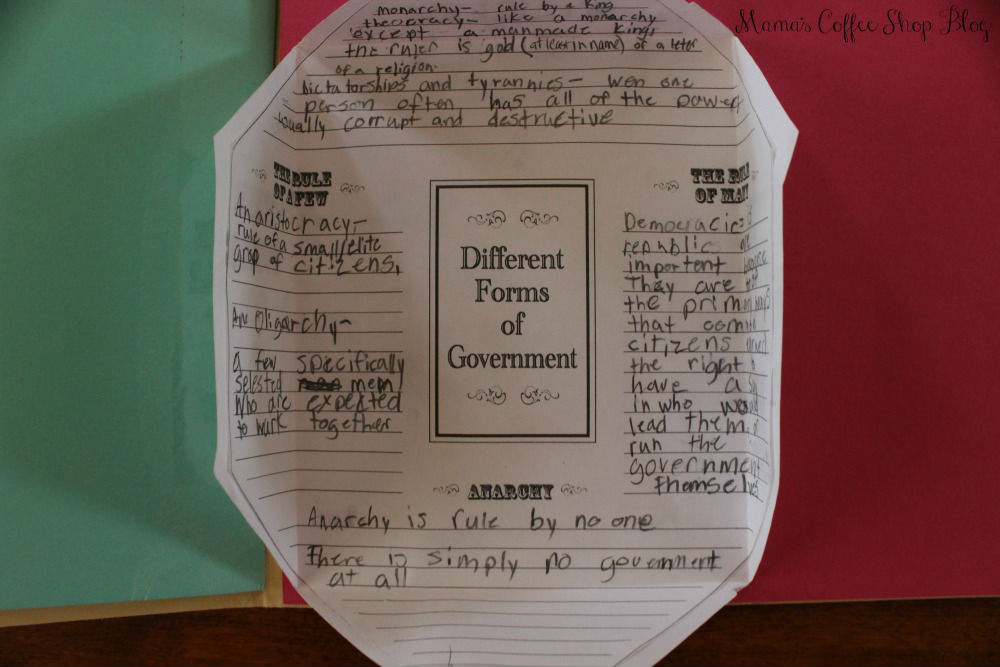 Mama's Coffee Shop Blog
monarchy- rule by a king
theocracy- like a monarchy
except a manmade king,
the ruler is god (at least in name) or a
of a religion.
Dictatorships and tyrannies- wen one
person often has all of the power
usually corrupt and destructive
THE RULE
OF A FEW
An aristocracy-
rule of a small/elite
grop of citizens,
An Oligarchy-
a few specifically
selested men
who are expected
to work together
Different
Forms
of
Government
THE
OF MANY
Democracies
republics
important
They are
the
that
citizens
the right
have a
in who
lead them
run the
government
themselves
ANARCHY
Anarchy is rule by no one
There is simply no government
at all